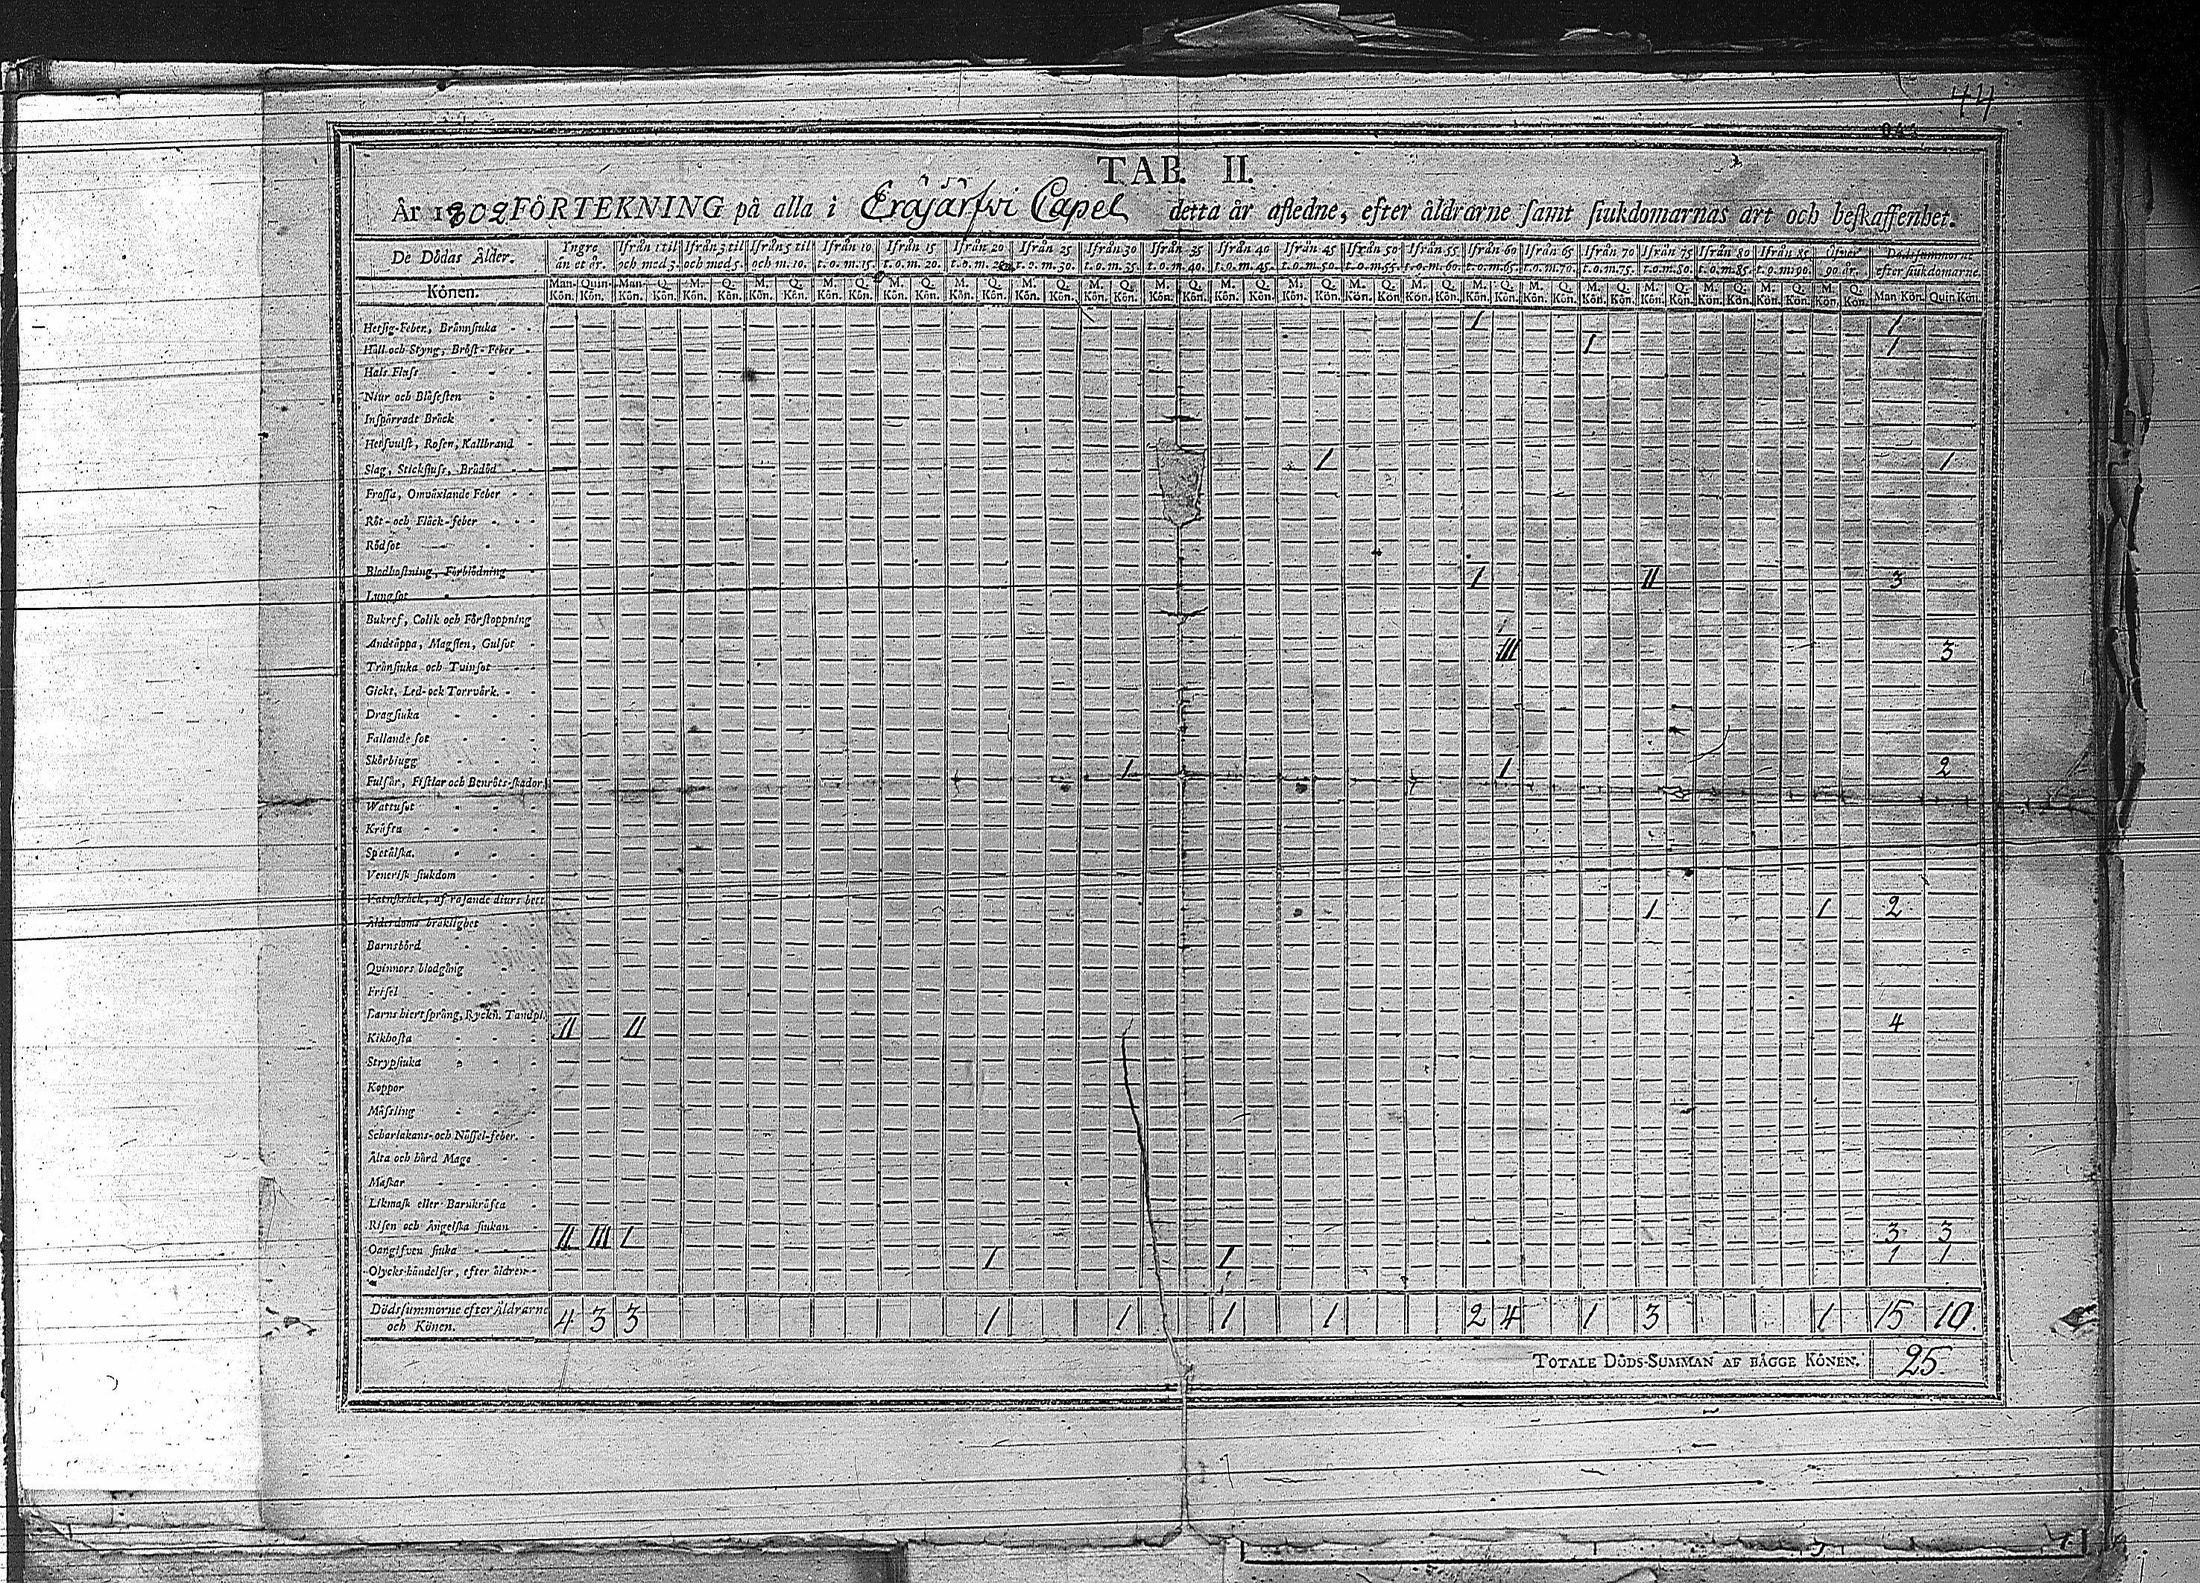 44
TAB. II.
År 1802 FÖRTEKNING på alla i Eräjärfvi Capel detta år aflednе, efter åldrarne samt siukdomarnas art och beskaffenhet.
De Dödas Ålder. Yngre än et år. Ifrån 1 til och med 3. Ifrån 3 til och med 5. Ifrån 5 til och m. 10. Ifrån 10 t. o. m. 15. Ifrån 15 t. o. m. 20. Ifrån 20 t. o. m. 25. Ifrån 25 t. o. m. 30. Ifrån 30 t. o. m. 35. Ifrån 35 t. o. m. 40. Ifrån 40 t. o. m. 45. Ifrån 45 t. o. m. 50. Ifrån 50 t. o. m. 55. Ifrån 55 t. o. m. 60. Ifrån 60 t. o. m. 65. Ifrån 65 t. o. m. 70. Ifrån 70 t. o. m. 75. Ifrån 75 t. o. m. 80. Ifrån 80 t. o. m. 85. Ifrån 85 t. o. m. 90. Öfver 90 år. Dödssummorne efter siukdomarne.
Könen. Man-Kön. Quin-Kön. Man-Kön. Q. Kön. M. Kön. Q. Kön. M. Kön. Q. Kön. M. Kön. Q. Kön. M. Kön. Q. Kön. M. Kön. Q. Kön. M. Kön. Q. Kön. M. Kön. Q. Kön. M. Kön. Q. Kön. M. Kön. Q. Kön. M. Kön. Q. Kön. M. Kön. Q. Kön. M. Kön. Q. Kön. M. Kön. Q. Kön. M. Kön. Q. Kön. M. Kön. Q. Kön. M. Kön. Q. Kön. M. Kön. Q. Kön. M. Kön. Q. Kön. M. Kön. Q. Kön. Man Kön. Quin Kön.
Hetsig-Feber, Brännsiuka 1 1
Håll och Styng, Bröst-Feber 1 1
Hals Fluss
Niur och Blåsesten
Inspärradt Bråck
Hetsvulst, Rosen, Kallbrand
Slag, Stickfluss, Brådöd 1 1
Frossa, Omväxlande Feber
Röt- och Fläck-feber
Rödsot
Blodhostning, Förblödning
Lungsot 1 II 3
Bukref, Colik och Förstoppning
Andtäppa, Magsten, Gulsot III 3
Trånsiuka och Tvinsot
Gickt, Led- och Torrvärk.
Dragsiuka
Fallande sot
Skörbiugg
Fulsår, Fistlar och Benröts-skador 1 1 2
Wattusot
Kräfta
Spetälska.
Venerisk siukdom
Vatnskräck, af rasande diurs bett
Ålderdoms bräklighet 1 1 2
Barnsbörd
Quinnors blodgång
Frisel
Barns hiertsprång, Ryckn. Tandpl.
Kikhosta II II 4
Strypsiuka
Koppor
Mässling
Scharlakans- och Nässel-feber.
Älta och hård Mage
Maskar
Likmask eller Barnkräfta
Risen och Ängelska siukan
Oangifven siuka II III 1 3 3
Olycks-händelser, efter åldren 1 1 1 1
Dödssummorne efter Åldrarne och Könen. 4 3 3 1 1 1 1 2 4 1 3 1 15 10.
TOTALE DÖDS-SUMMAN AF BÄGGE KÖNEN. 25.